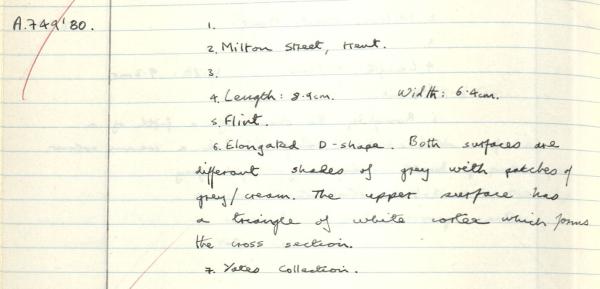 A.749'80.
1.
2. Milton Street, Kent.
3.
4. Length: 8.9cm. Width: 6.4cm.
5. Flint.
6. Elongated D-shape. Both surfaces are
different shades of grey with patches of
grey/cream. The upper surface has
a triangle of white cortex which forms
the cross section.
7. Yates Collection.